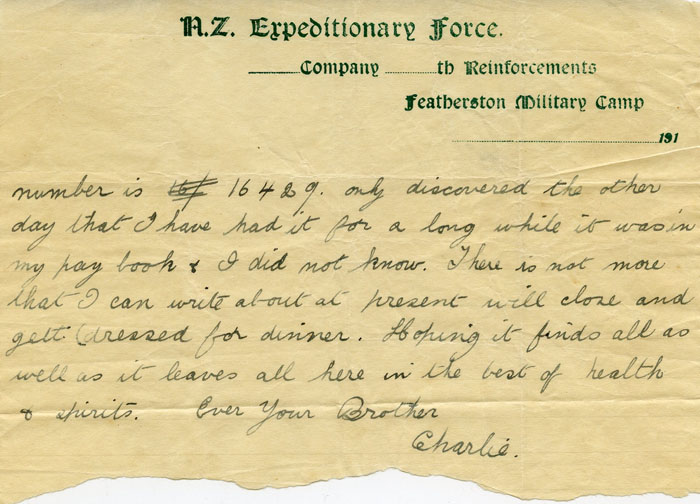 N.Z. Expeditionary Force.
Company th Reinforcements
Featherston Military Camp
191
number is 16429. only discovered the other
day that I have had it for a long while it was in
my pay book & I did not know. There is not more
that I can write about at present will close and
gett (dressed for dinner. Hoping it finds all as
well as it leaves all here in the best of health
& spirits. Ever Your Brother
Charlie.